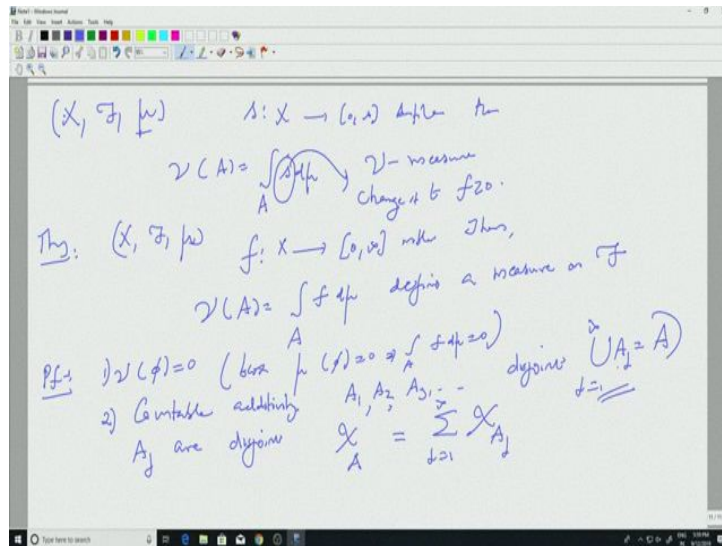 Note1 - Windows Journal
File Edit View Insert Actions Tools Help
(X, F, μ) s: X → [0, ∞) simple then
ν(A) = ∫_A s dμ → ν-measure
change it to f≥0.
Thm: (X, F, μ) f: X → [0, ∞] mble Then,
ν(A) = ∫_A f dμ defines a measure on F
Pf: 1) ν(φ)=0 (bcoz μ(φ)=0 ⇒ ∫_A f dμ=0)
2) Countable additivity A₁, A₂, A₃, ... disjoint ⋃_{j=1}^∞ A_j = A)
A_j are disjoint χ_A = ∑_{j=1}^∞ χ_{A_j}
Type here to search